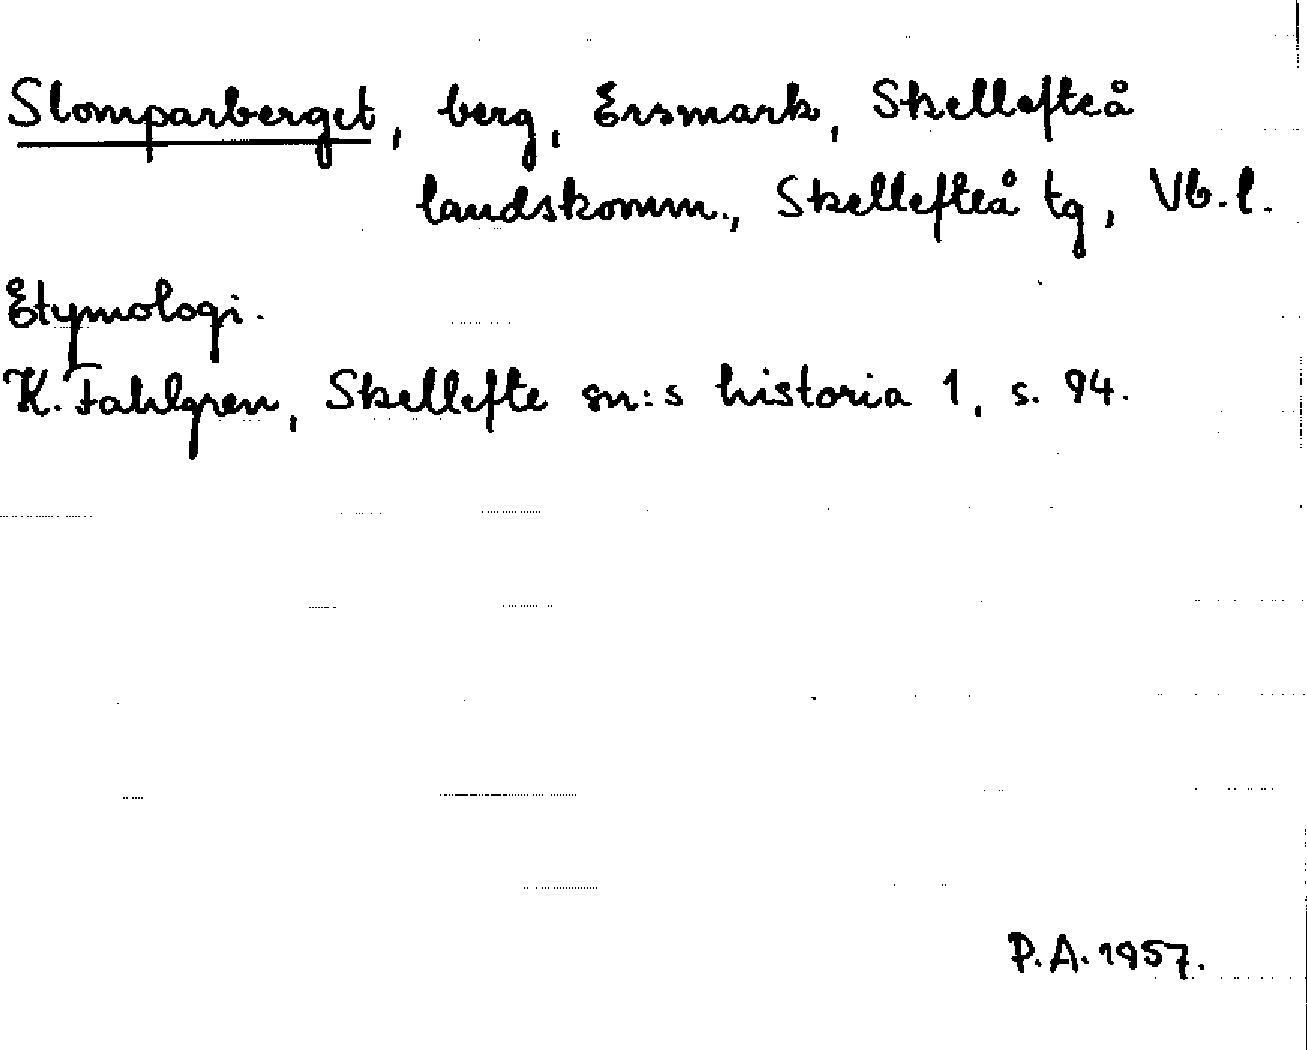 Slomparberget, berg, Ersmark, Skellefteå
landskomm., Skellefteå tg, Vb. l.
Etymologi.
K. Fahlgren, Skellefte sn:s historia 1, s. 94.
P.A. 1957.